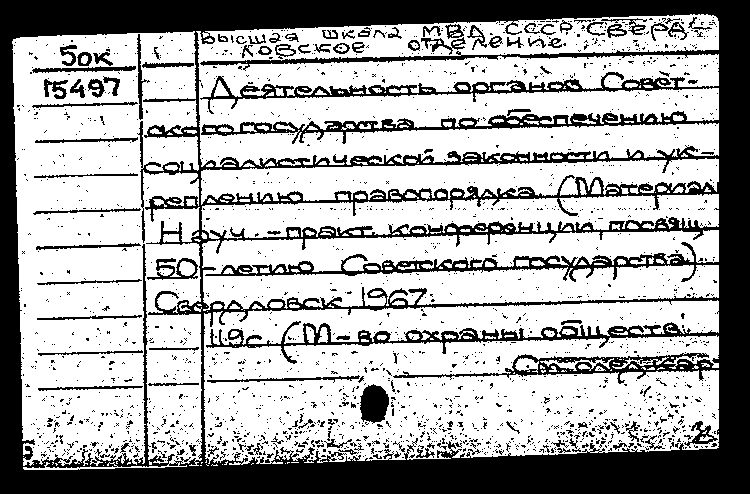 Высшая школа МВД СССР. Сверд-
ловское отделение.
50к
15497
Деятельность органов Совет-
ского государства по обеспечению
социалистической законности и ук-
реплению правопорядка. (Материалы
Науч.-практ. конференции, посвящ.
50-летию Советского государства).
Свердловск, 1967.
119с. (М-во охраны обществ.
См. след. кар